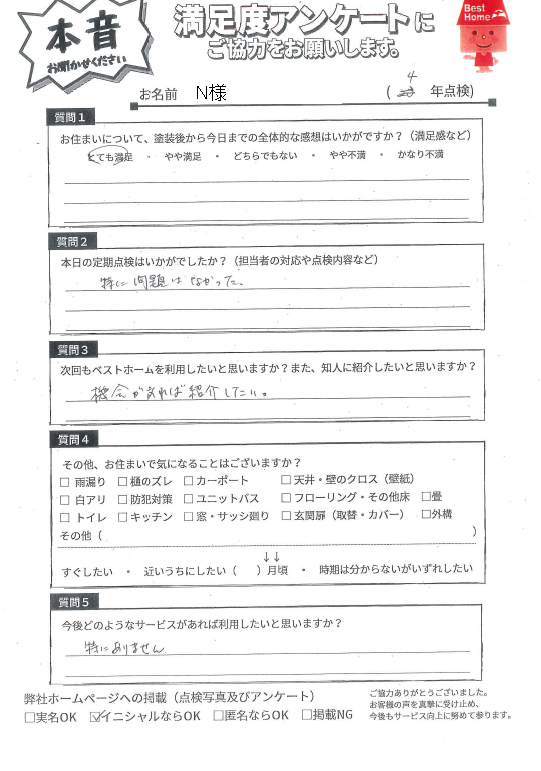 本音
お聞かせください
満足度アンケートに
ご協力をお願いします。
Best
Home
お名前 N様 (4年点検)
質問1
お住まいについて、塗装後から今日までの全体的な感想はいかがですか？（満足感など）
とても満足 ・ やや満足 ・ どちらでもない ・ やや不満 ・ かなり不満
質問2
本日の定期点検はいかがでしたか？（担当者の対応や点検内容など）
特に問題はなかった。
質問3
次回もベストホームを利用したいと思いますか？また、知人に紹介したいと思いますか？
機念があれば紹介したい。
質問4
その他、お住まいで気になることはございますか？
□ 雨漏り □ 樋のズレ □ カーポート □ 天井・壁のクロス（壁紙）
□ 白アリ □ 防犯対策 □ ユニットバス □ フローリング・その他床 □畳
□ トイレ □ キッチン □ 窓・サッシ廻り □ 玄関扉（取替・カバー） □外構
その他（ ）
↓↓
すぐしたい ・ 近いうちにしたい（ ）月頃 ・ 時期は分からないがいずれしたい
質問5
今後どのようなサービスがあれば利用したいと思いますか？
特にありません
弊社ホームページへの掲載（点検写真及びアンケート）
□実名OK ☑イニシャルならOK □匿名ならOK □掲載NG
ご協力ありがとうございました。
お客様の声を真摯に受け止め、
今後もサービス向上に努めて参ります。